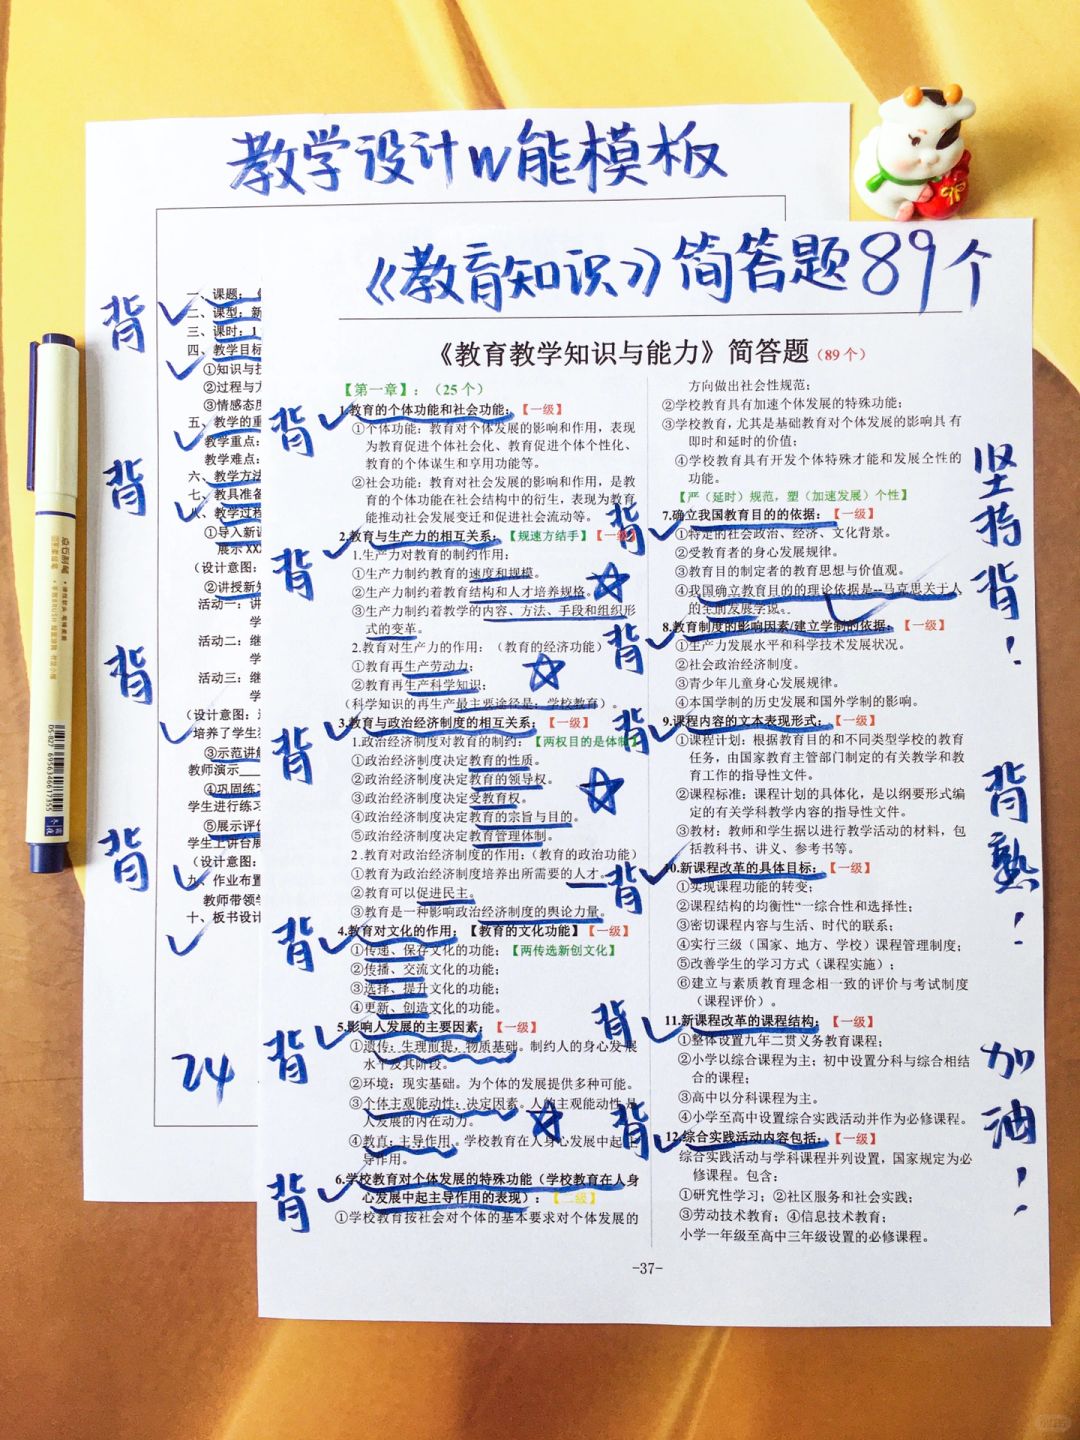 教学设计w能模板
《教育知识》简答题89个
背
背
背
背
一、课题：
二、课型：新
三、课时：1
四、教学目标
①知识与技
②过程与方
③情感态度
五、教学的重
教学重点：
教学难点：
六、教学方法
七、教具准备
八、教学过程
①导入新课
展示XX
(设计意图：
②讲授新知
活动一：讲
学
活动二：继
学
活动三：继
学
(设计意图：
培养了学生
③示范讲解
教师演示
④巩固练习
学生进行练习
⑤展示评价
学生上讲台展
(设计意图：
九、作业布置
教师带领学
十、板书设计
24
《教育教学知识与能力》简答题（89个）
【第一章】：（25个）
背
1.教育的个体功能和社会功能：【一级】
①个体功能：教育对个体发展的影响和作用，表现
为教育促进个体社会化、教育促进个体个性化、
教育的个体谋生和享用功能等。
②社会功能：教育对社会发展的影响和作用，是教
育的个体功能在社会结构中的衍生，表现为教育
能推动社会发展变迁和促进社会流动等。
背
2.教育与生产力的相互关系：【规速方结手】【一级】
1.生产力对教育的制约作用：
①生产力制约教育的速度和规模。
②生产力制约着教育结构和人才培养规格。
③生产力制约着教学的内容、方法、手段和组织形
式的变革。
2.教育对生产力的作用：（教育的经济功能）
①教育再生产劳动力；
②教育再生产科学知识；
（科学知识的再生产最主要途径是：学校教育）。
背
3.教育与政治经济制度的相互关系：【一级】
1.政治经济制度对教育的制约：【两权目的是体制】
①政治经济制度决定教育的性质。
②政治经济制度决定教育的领导权。
③政治经济制度决定受教育权。
④政治经济制度决定教育的宗旨与目的。
⑤政治经济制度决定教育管理体制。
2.教育对政治经济制度的作用：（教育的政治功能）
①教育为政治经济制度培养出所需要的人才。
②教育可以促进民主。
③教育是一种影响政治经济制度的舆论力量。
背
4.教育对文化的作用：【教育的文化功能】【一级】
①传递、保存文化的功能；【两传选新创文化】
②传播、交流文化的功能；
③选择、提升文化的功能；
④更新、创造文化的功能。
背
5.影响人发展的主要因素：【一级】
①遗传：生理前提，物质基础。制约人的身心发展
水平及其阶段。
②环境：现实基础。为个体的发展提供多种可能。
③个体主观能动性：决定因素。人的主观能动性是
人发展的内在动力。
④教育：主导作用。学校教育在人身心发展中起主
导作用。
背
6.学校教育对个体发展的特殊功能（学校教育在人身
心发展中起主导作用的表现）：【二级】
①学校教育按社会对个体的基本要求对个体发展的
方向做出社会性规范；
②学校教育具有加速个体发展的特殊功能；
③学校教育，尤其是基础教育对个体发展的影响具有
即时和延时的价值；
④学校教育具有开发个体特殊才能和发展个性的
功能。
【严（延时）规范，塑（加速发展）个性】
背
7.确立我国教育目的的依据：【一级】
①特定的社会政治、经济、文化背景。
②受教育者的身心发展规律。
③教育目的制定者的教育思想与价值观。
④我国确立教育目的的理论依据是--马克思关于人
的全面发展学说。
背
8.教育制度的影响因素/建立学制的依据：【一级】
①生产力发展水平和科学技术发展状况。
②社会政治经济制度。
③青少年儿童身心发展规律。
④本国学制的历史发展和国外学制的影响。
背
9.课程内容的文本表现形式：【一级】
①课程计划：根据教育目的和不同类型学校的教育
任务，由国家教育主管部门制定的有关教学和教
育工作的指导性文件。
②课程标准：课程计划的具体化，是以纲要形式编
定的有关学科教学内容的指导性文件。
③教材：教师和学生据以进行教学活动的材料，包
括教科书、讲义、参考书等。
背
10.新课程改革的具体目标：【一级】
①实现课程功能的转变；
②课程结构的均衡性“—综合性和选择性；
③密切课程内容与生活、时代的联系；
④实行三级（国家、地方、学校）课程管理制度；
⑤改善学生的学习方式（课程实施）；
⑥建立与素质教育理念相一致的评价与考试制度
（课程评价）。
背
11.新课程改革的课程结构：【一级】
①整体设置九年二贯义务教育课程；
②小学以综合课程为主；初中设置分科与综合相结
合的课程；
③高中以分科课程为主。
④小学至高中设置综合实践活动并作为必修课程。
背
12.综合实践活动内容包括：【一级】
综合实践活动与学科课程并列设置，国家规定为必
修课程。包含：
①研究性学习；②社区服务和社会实践；
③劳动技术教育；④信息技术教育；
小学一年级至高中三年级设置的必修课程。
-37-
坚持背！
背熟！
加油！
6956346617355